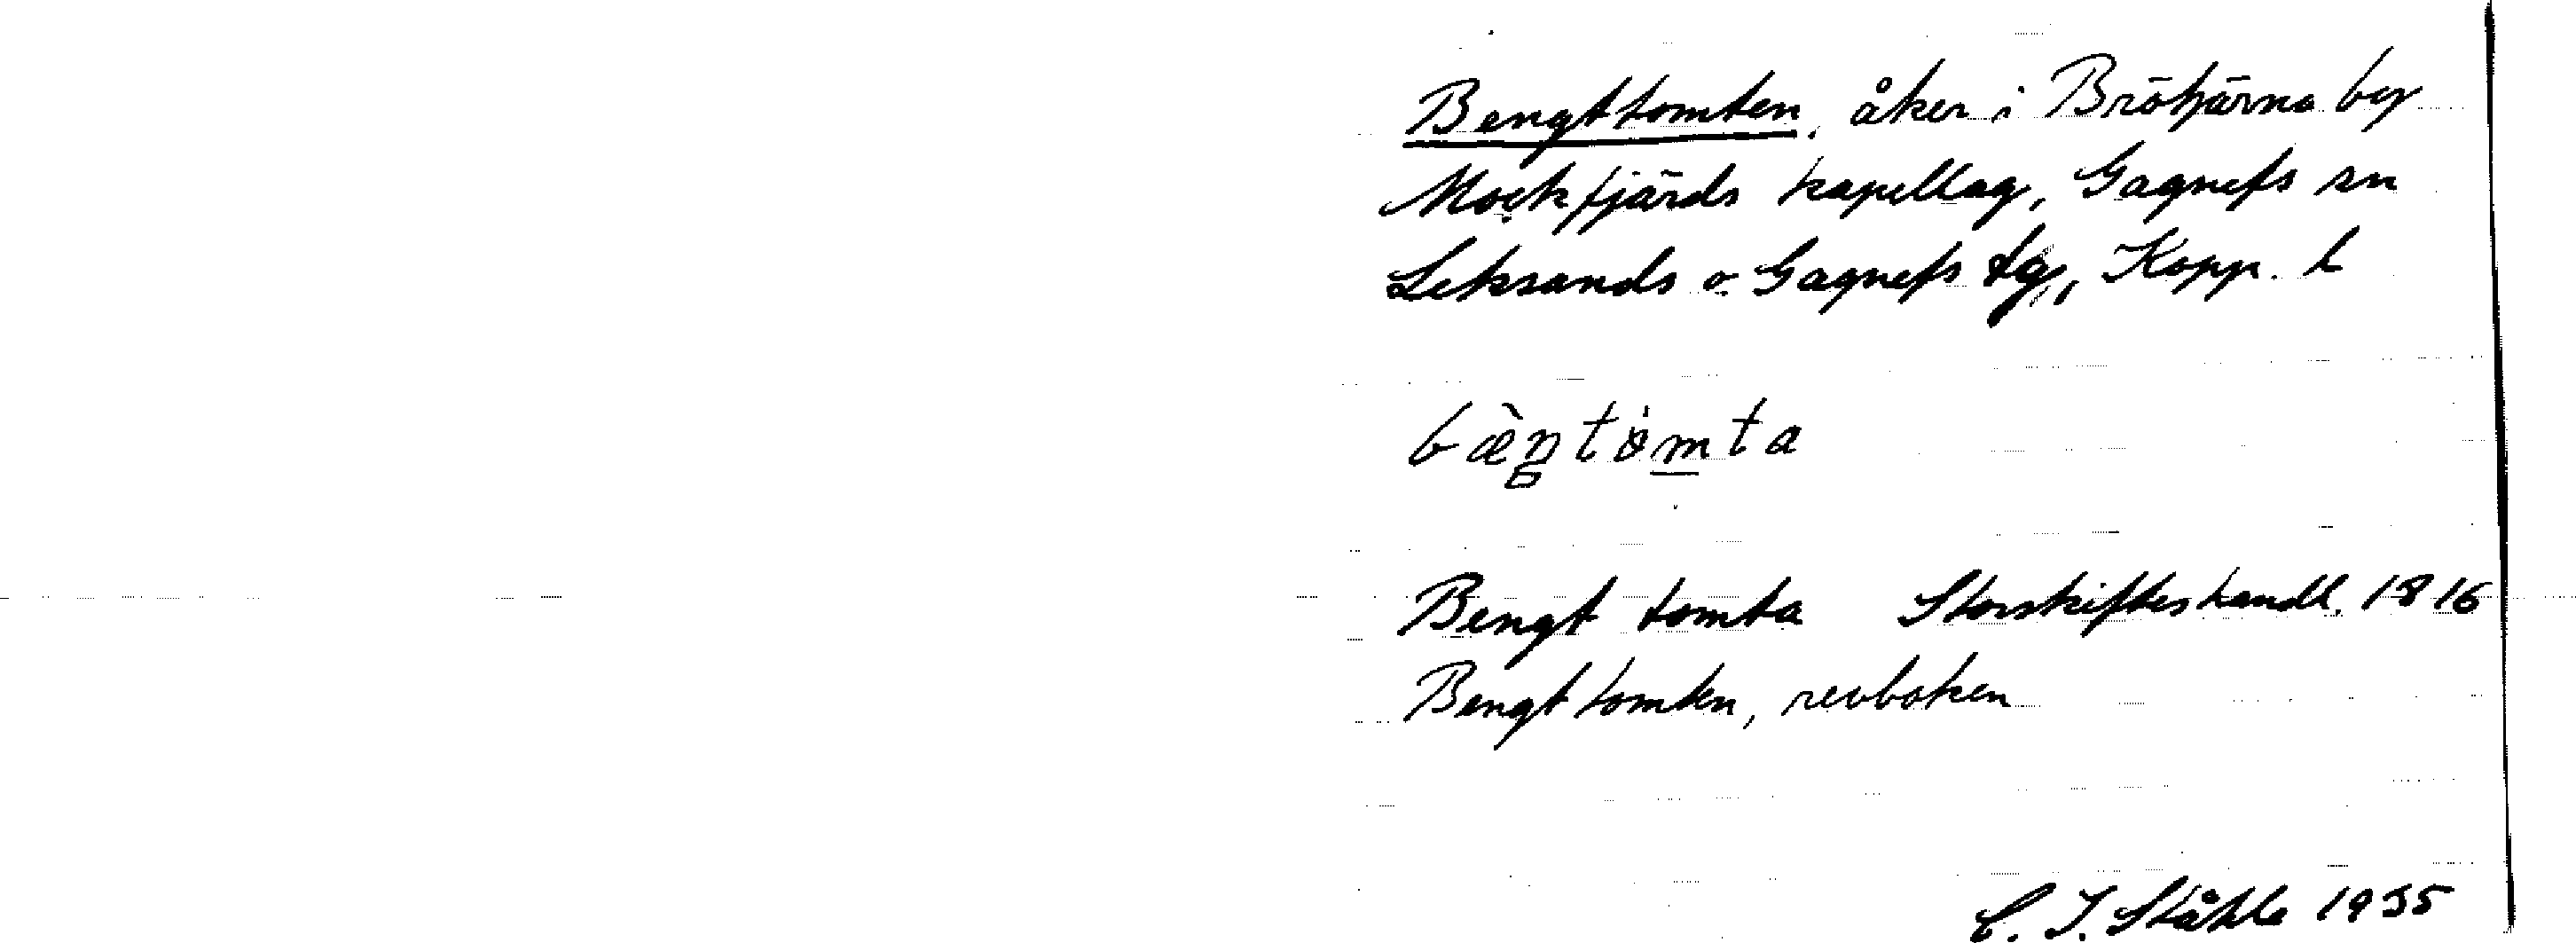 Bengttomten, åker i Brötjärna by
Mockfjärds kapellag, Gagnefs sn
Leksands o. Gagnefs tg, Kopp. L
Bengt tomta Storskifteshandl. 1816
Bengt tomten, revboken
C. I. Ståhle 1935